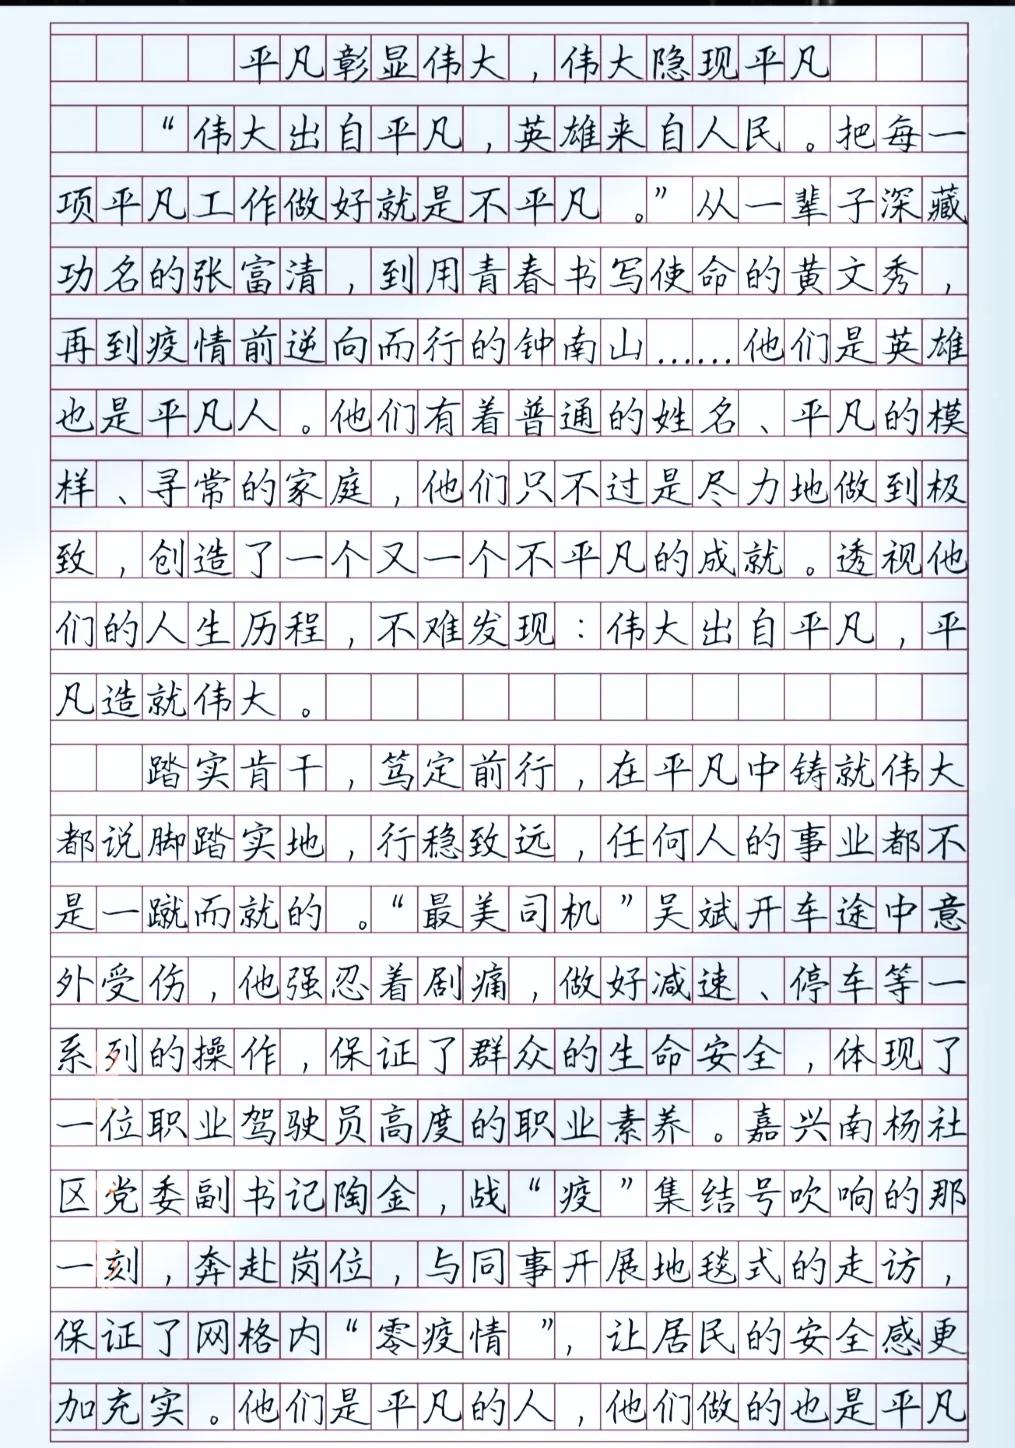 平凡彰显伟大，伟大隐现平凡
“伟大出自平凡，英雄来自人民。把每一
项平凡工作做好就是不平凡。”从一辈子深藏
功名的张富清，到用青春书写使命的黄文秀，
再到疫情前逆向而行的钟南山……他们是英雄
也是平凡人。他们有着普通的姓名、平凡的模
样、寻常的家庭，他们只不过是尽力地做到极
致，创造了一个又一个不平凡的成就。透视他
们的人生历程，不难发现：伟大出自平凡，平
凡造就伟大。
踏实肯干，笃定前行，在平凡中铸就伟大
都说脚踏实地，行稳致远，任何人的事业都不
是一蹴而就的。“最美司机”吴斌开车途中意
外受伤，他强忍着剧痛，做好减速、停车等一
系列的操作，保证了群众的生命安全，体现了
一位职业驾驶员高度的职业素养。嘉兴南杨社
区党委副书记陶金，战“疫”集结号吹响的那
一刻，奔赴岗位，与同事开展地毯式的走访，
保证了网格内“零疫情”，让居民的安全感更
加充实。他们是平凡的人，他们做的也是平凡